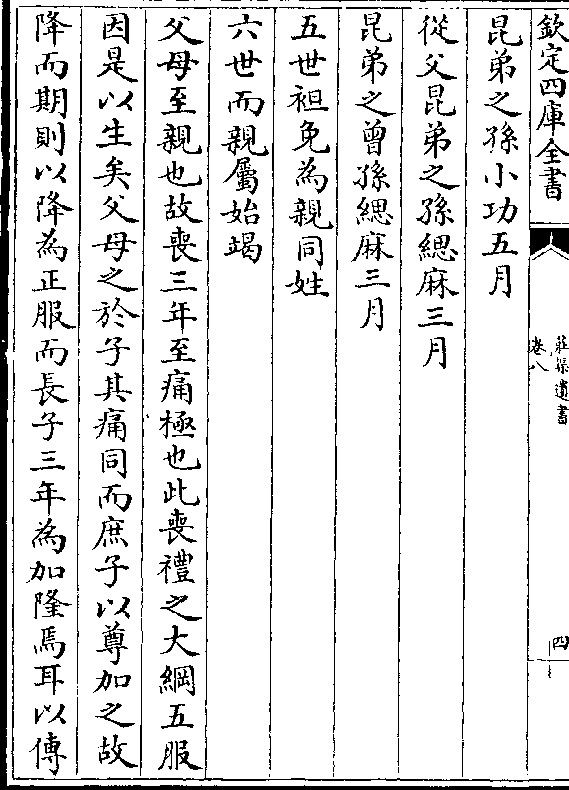 欽定四庫全書
莊渠遺書
卷八
四
昆弟之孫小功五月
從父昆弟之孫緦麻三月
昆弟之曾孫緦麻三月
五世袒免為親同姓
六世而親屬始竭
父母至親也故喪三年至痛極也此喪禮之大綱五服
因是以生矣父母之於子其痛同而庶子以尊加之故
降而期則以降為正服而長子三年為加隆焉耳以傳